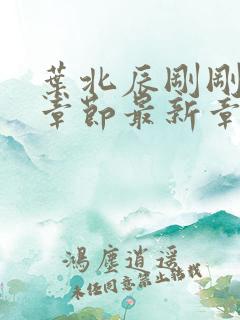 葉北辰剛剛
章節最新章
鴻塵逍遥
未经同意禁止转载